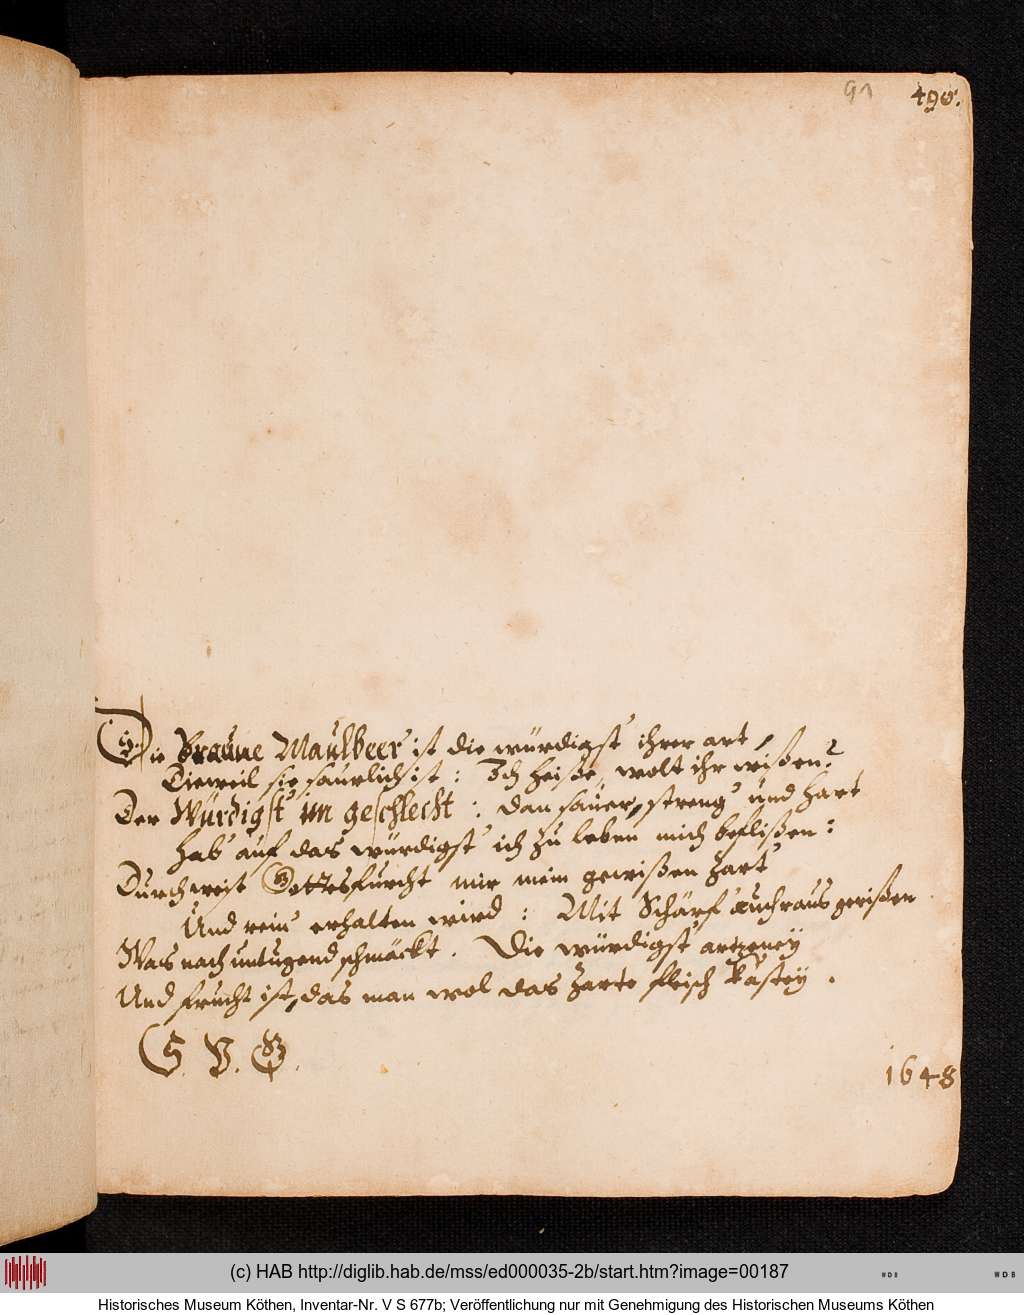 91 490.
Die Braune Maulbeer ist die würdigst ihrer art,
Dieweil sie saurlich ist: Ich heiße, wolt ihr wißen?
Der Würdigst im geschlecht: dan sauer, streng und hart
hab' auf das würdigst' ich zu leben mich beflißen:
Durch weist Gottesfurcht mir mein gewißen zart
Und rein erhalten wird: Mit Schärf' auch raus gerißen
Was nach untugend schmäckt. Die würdigst' artzeney
Und frucht ist, das man wol das zarte fleisch kasteÿ.
S. V. B.
1648
(c) HAB http://diglib.hab.de/mss/ed000035-2b/start.htm?image=00187
WDB
WDB
Historisches Museum Köthen, Inventar-Nr. V S 677b; Veröffentlichung nur mit Genehmigung des Historischen Museums Köthen